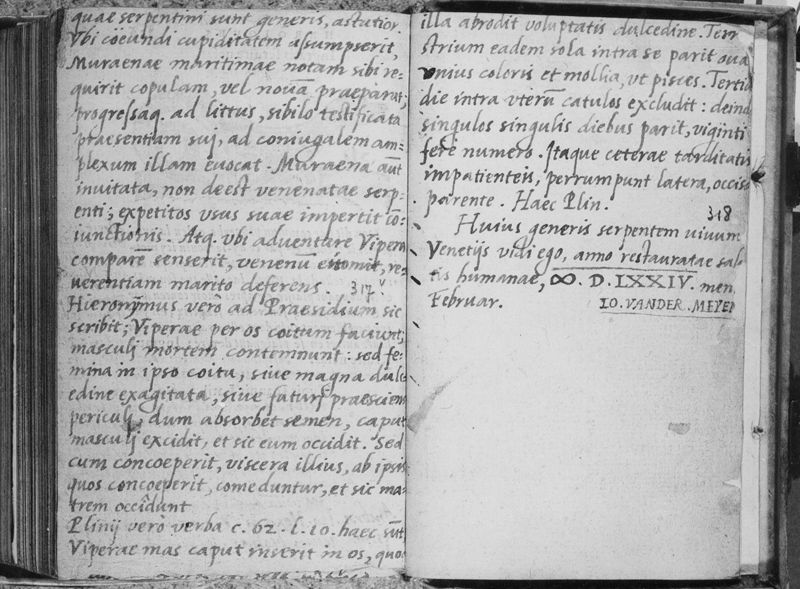 quae serpentini sunt generis, astutior.
Vbi cöeundi cupiditatem assumpserit,
Muraenae maritimae notam sibi re=
quirit copulam, vel nouā praeparat;
progressaq. ad littus, sibilo testificata
praesentiam suj, ad coniugalem am=
plexum illam euocat. Muraena aūt
inuitata, non deest venenatae serp=
enti; expetitos vsus suae impertit cō=
iunctionis. Atq. vbi aduentare Vipera
comparē senserit, venenū euomit, re=
uerentiam marito deferens. 317
Hieronÿmus verò ad Praesidium sic
scribit; Viperae per os coitum faciunt;
masculj mortem contemnunt: sed fe=
mina in ipso coitu, siue magna dulc
edine exagitata, siue futurj praesciens
periculj, dum absorbet semen, caput
masculj excidit, et sic eum occidit. Sed
cum concoeperit, viscera illius, ab ipsis
quos concoeperit, comeduntur, et sic ma=
trem occîdunt
Plinij verò verba c. 62. l. 10. haec sūt
Viperae mas caput inserit in os, quod
illa abrodit voluptatis dulcedine. Terr
strium eadem sola intra se parit oua
vnius coloris et mollia, vt pisces. Tertio
die intra vterū catulos excludit: deind
singulos singulis diebus parit, viginti
fere numero. Itaque ceterae tarditatis
impatienteis, perrumpunt latera, occisa
parente. Haec Plin.
318
Huius generis serpentem uiuum
Venetijs vidi ego, anno restauratae salu
tis humanae, ↀ. D. LXXIV. men.
Februar.
IO. VANDER. MEYER